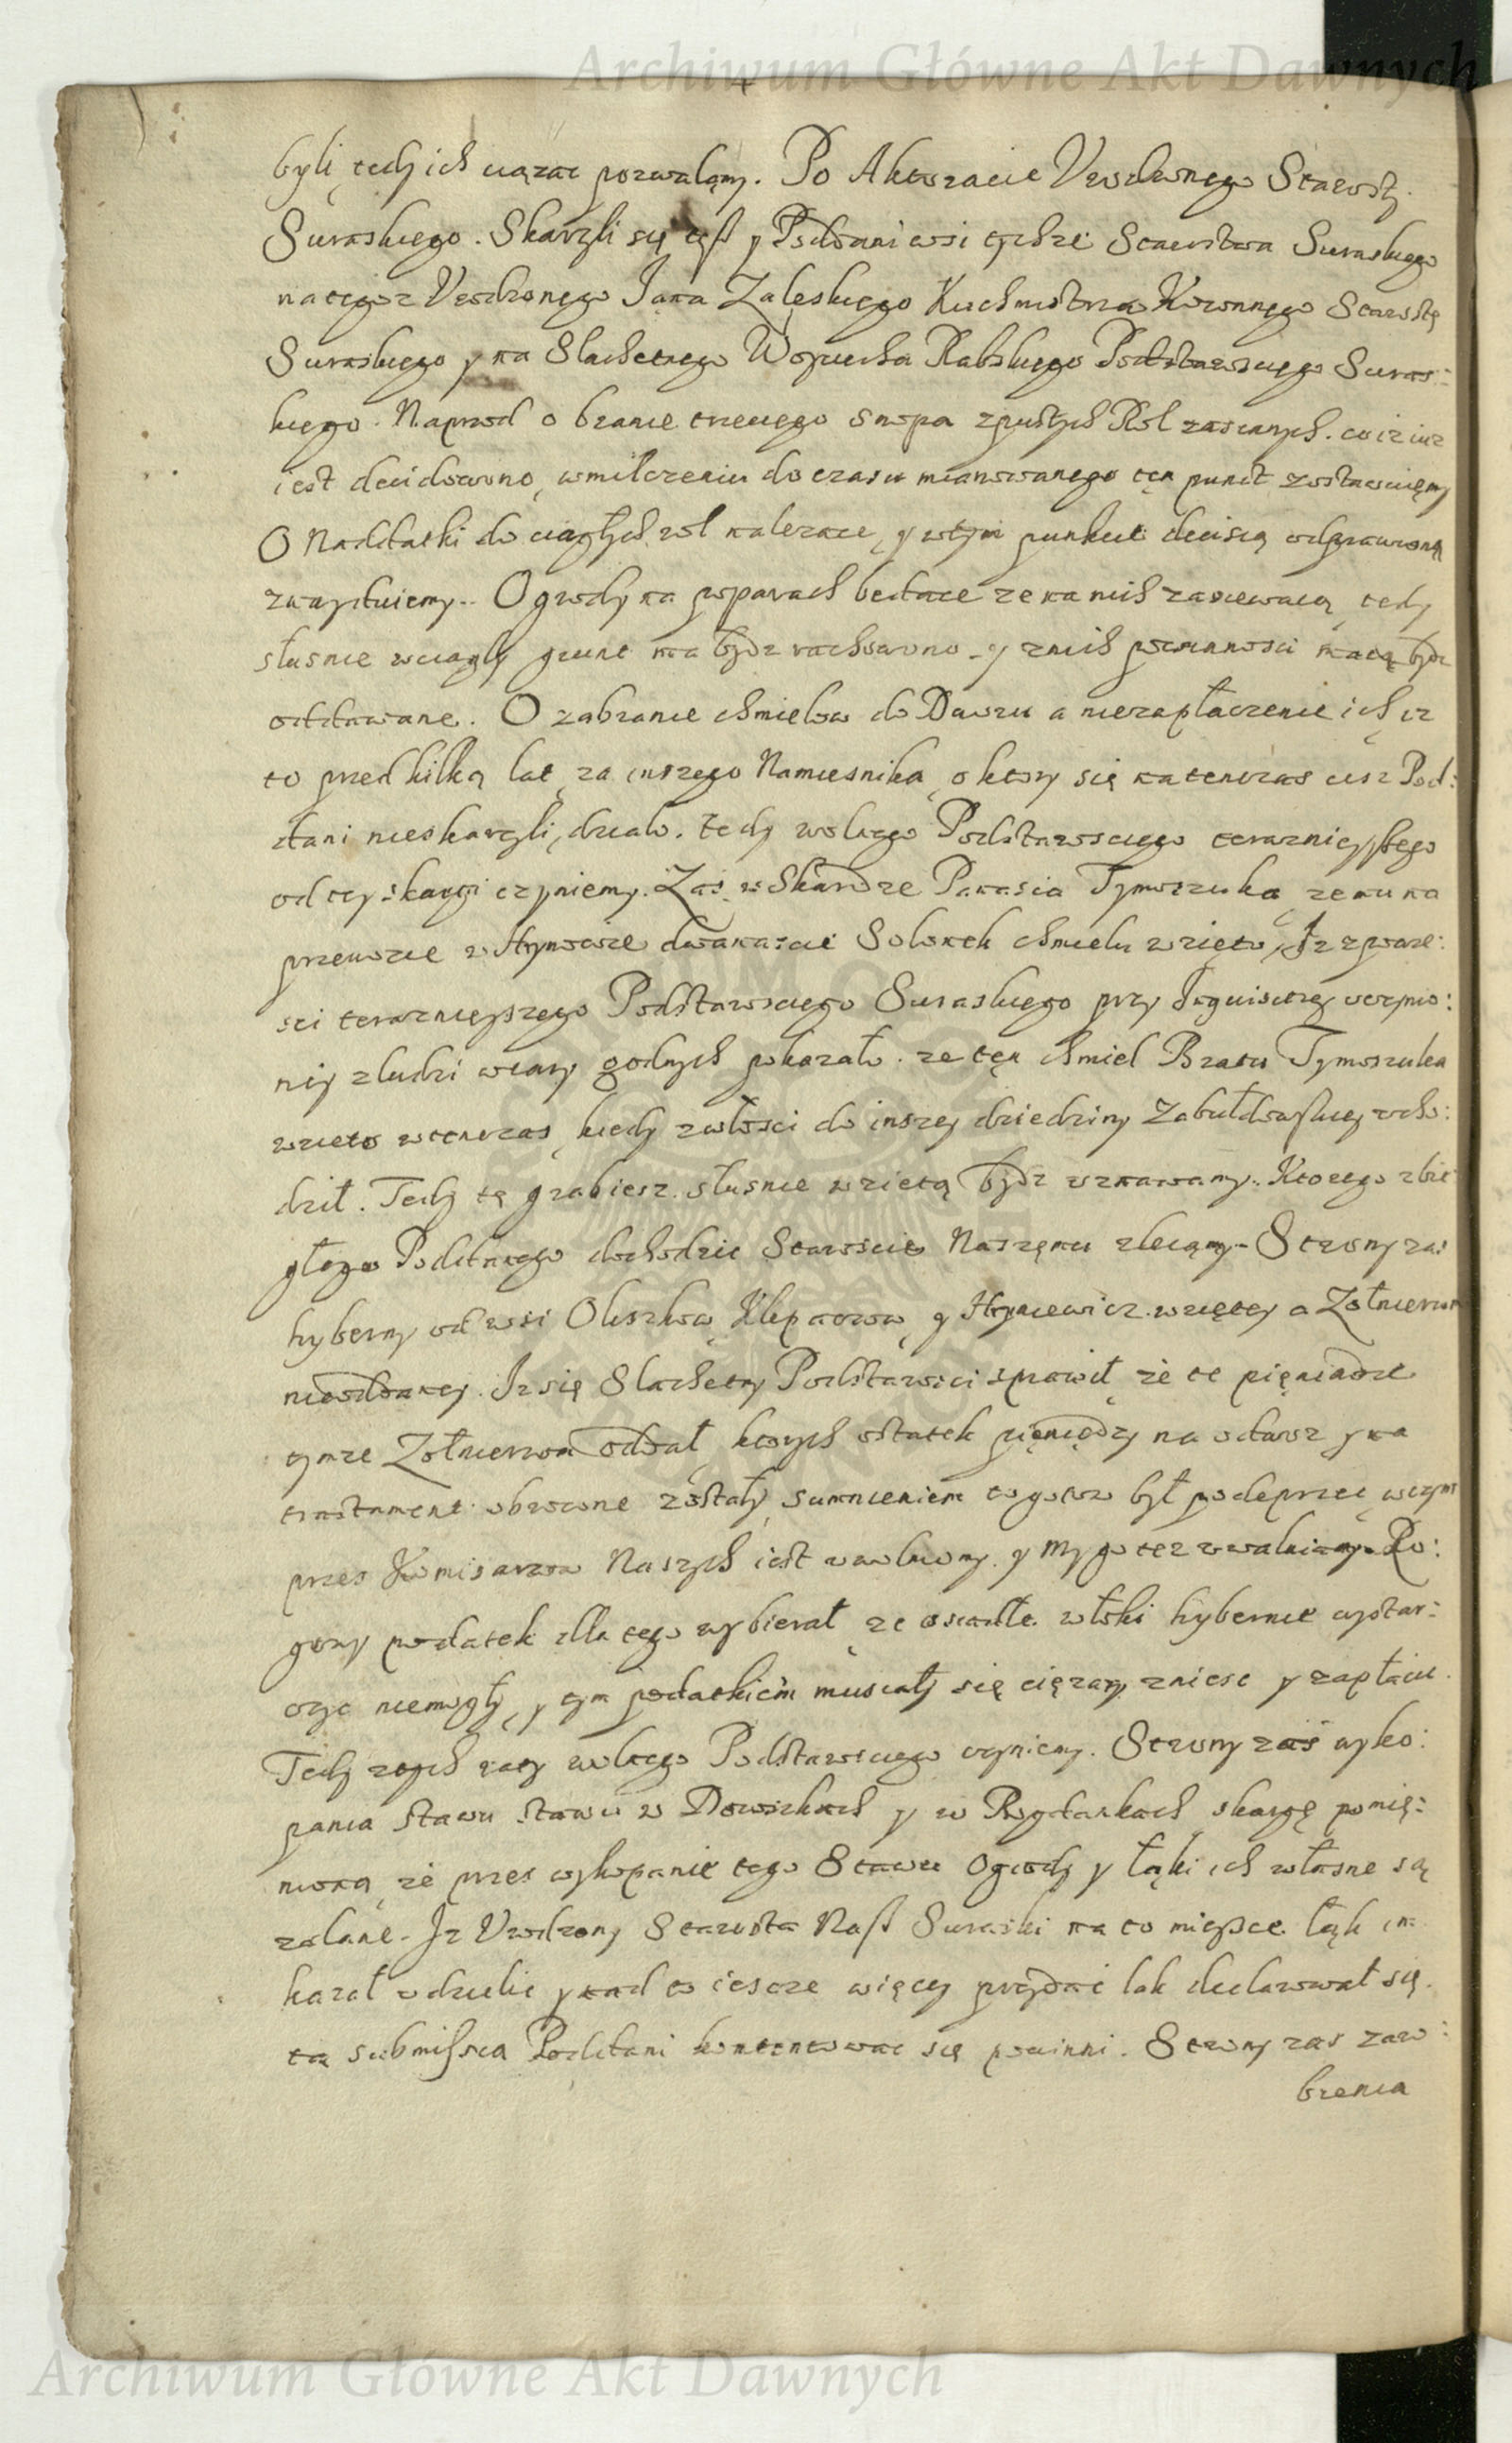 Archiwum Główne Akt Dawnych
byli tedy ich ciązac pozwalamy. Po Aktoracie Vrodzonego Starosty
Suraskiego. Skarzyli się tesz y Poddani wsi tychze Starostwa Suraskiego
na tegoz Vrodzonego Jana Zaleskiego Kuchmistrza Koronnego Starostę
Suraskiego y na Slachetnego Woyciecha Rabskiego Podstarosciego Suras:
kiego. Naprzod o branie trzeciego snopa z pustych Rol zasianych. co iz iuz
iest decidowano, w milczeniu do czasu mianowanego ten punct zostawuiemy
O Naddatki do ciagłych rol nalezace, y w tym punkcie decisią odprawioną
znayduiemy. Ogrody na zporach bedace ze na nich zasiewaią, tedy
słusnie w ciągły grunt ma bydz rachowano y z nich powinnosci maią bydz
oddawane. O zabranie chmielow do Dworu a niezapłaczenie ich, iz
to przed kilką lat, za inszego Namiesnika, o ktory się na tenczas ciz Pod:
dani nieskarzyli, działo. Tedy wolnego Podstarosciego teraznieyszego
od tey skargi czyniemy. Zas w Skardze Panasia Tymoszuka, ze mu na
przewozie w Hrynowce dwanascie Solonek chmielu wzięto, Iz z powie:
sci teraznieyszego Podstarosciego Suraskiego przy Inquisitiey uczynio:
ney z ludzi wiary godnych pokazało. ze ten chmiel Bratu Tymoszuka
wzieto wtenczas, kiedy z włosci do inszey dziedziny Zabułdowskiey ucho:
dził. Tedy tę grabiesz słusnie wzietą bydz uznawamy. Ktorego zbie
głego Poddanego dochodzic Staroscie Naszemu zlecamy. Strony zas
hyberny od wsi Oliszkow, Klepaczow, y Hryniewicz wzietey a Zołnierzom
nieoddaney. Iz się Slachetny Podstarosci sprawił, ze te pięniadze
tymze Zołnierzom oddał, ktorych ostatek pięniędzy na oddaroz y na
tractament obrocone zostały, sumnieniem to gotow był podeprzec, w czym
przes Komisarzow Naszych iest uwolniony. y My go tez uwalniamy. Po:
gowy podatek dla tego wybierał, ze osiadłe włoki hybernie wystar:
czyc niemogły, y tym podatkiem musiały się cięzary zniesc y zapłacic.
Tedy z tych racy wolnego Podstarosciego czyniemy. Strony zas wyko:
pania stawu stawu w Dowiczkach y w Bogdankach, skargę ponię:
nioną, ze przes wykopanie tego Stawu Ogrody y łąki ich własne są
zalane. Iz Vrodzony Starosta Nasz Suraski na to mieysce łąk im
kazał udzielic y nad to iescze więcey przydac łak declarował się.
tą submissią Poddani kontentowac się powinni. Strony zas zaw:
brenia
Archiwum Główne Akt Dawnych